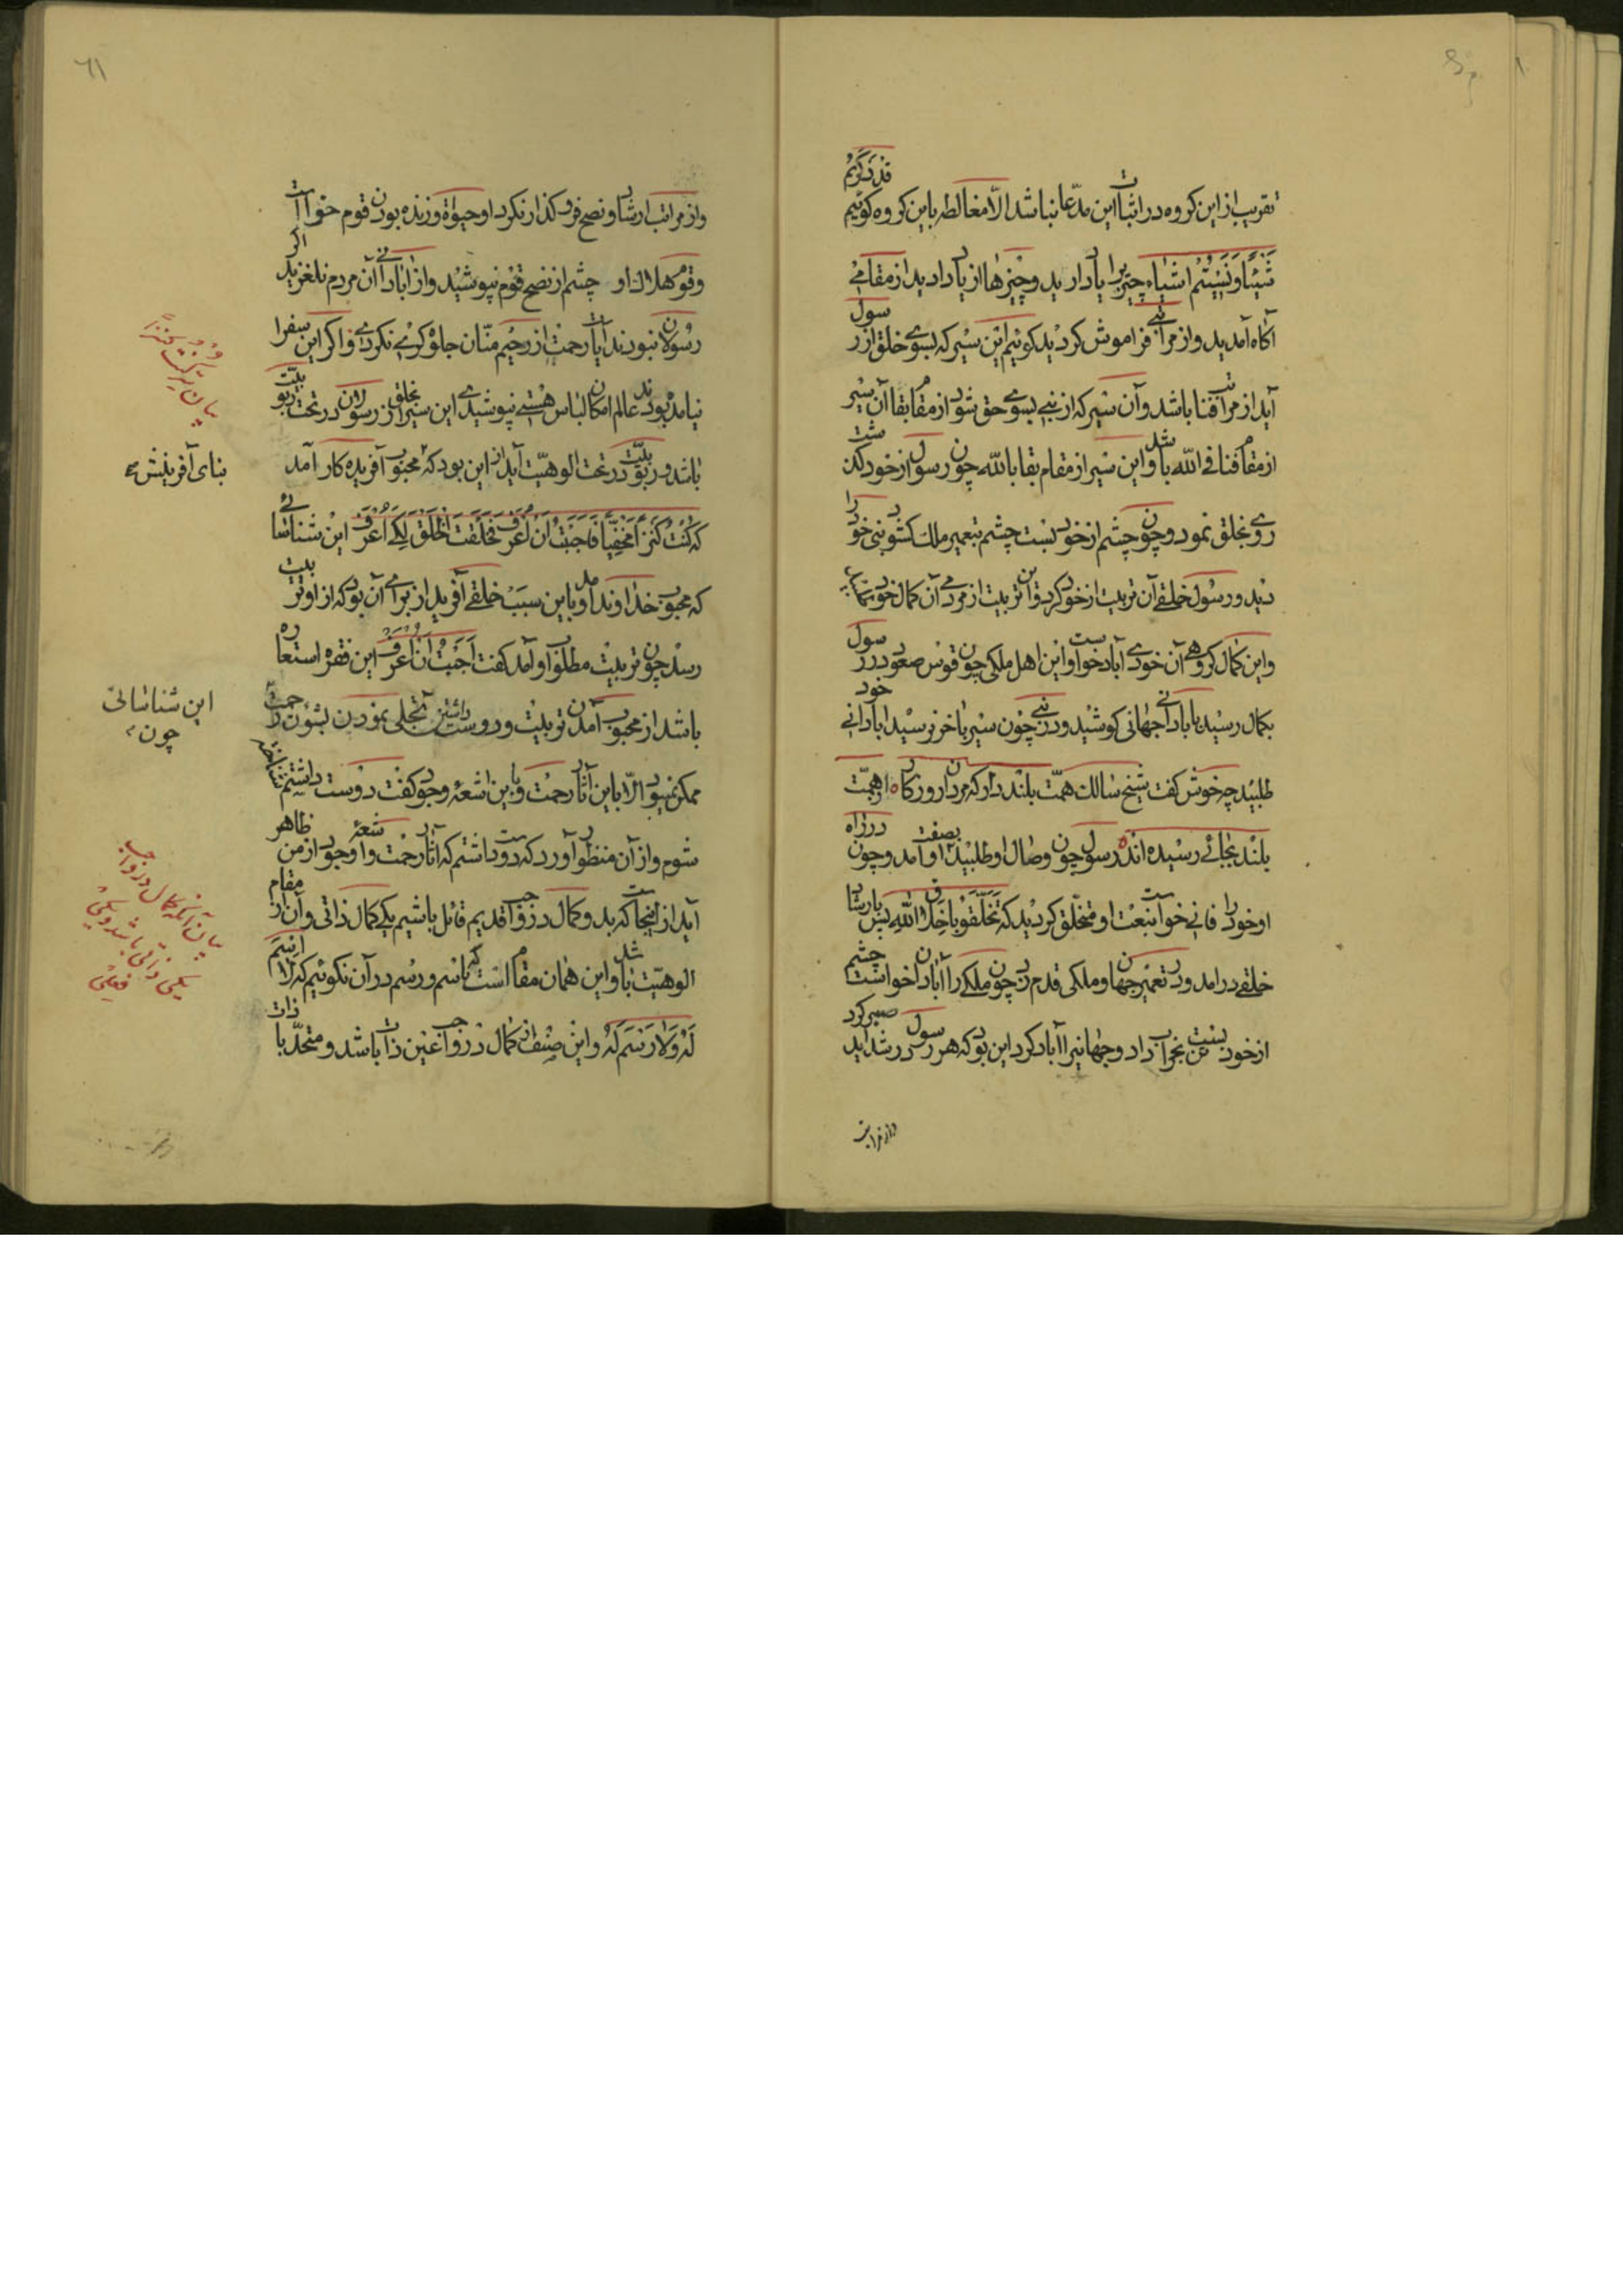 تقریب از این کروه در اثبات این مدّعا نباشد الّا مغالطه باین کروه کوئیم قَدْ ذَکَرْتُمْ
شَیْئًا وَ نَسِیْتُمْ اَشْیاء چیزیرا یاد دارید و چیزها از یاد دادید از مقامی
آکاه آمدید و از مراتبی فراموش کردید کوئیم این سیر که بسوی خلق از رسول
آید از مراتب فنا باشد و آن سیر که از نبی بسوی حق شود از مقام بقا آن سیر
از مقام فنا فی الله باشد و این سیر از مقام بقا بالله چون رسول از خود کذشت
روی بخلق نمود و چون چشم از خود بست چشم بتعمیر ملک کشود نبی خود را
دید و رسول خلقی آن تربیت از خود کرد و این تربیت از مردمی آن کمال خود
و این کمال کروهی آن خودی آباد خواست و این اهل ملکی چون قوس صعود در رسول
بکمال رسید بآبادانی جهانی کوشید و در نبی چون سیر بآخر نرسید آبادانی خود
طلبید چه خوش کفت شیخ سالک همّت بلند دار که مردان روزکار از همّت
بلند بجائی رسیده اند رسول چون وصال او طلبید بصفت او آمد و چون در راه
او خود را فانی خواست بنعت او متخلّق کردید که تَخَلَّقُوا بِاَخْلاقِ اللهِ پس بارشاد
خلقی درامد و در تعمیر جهان و ملکی قدم زد چون ملکی را آبادان خواست چشم
از خود بست تن بخراب داد و جهانیرا آباد کرد این بود که هر رسول در شداید صبر کرد
و از مراتب
٦١
و از مراتب ارشاد و نصح فرو کذار نکرد او حیوة و زنده بودن قوم خواست
و قوم هلاک او چشم از نصح قوم نپوشید و از آبادانی آن مردم نلغزید اکر
رسولان نبودند آیات رحمت از رحیم منّان جلوه کری نکردی و اکر این سفرا
نیامده بودند عالم امکان لباس هستی نپوشیدی این سیر از رسولان بخلق در تحت ربوبیّت
باشد و ربوبیّت در تحت الوهیّت آید از این بود که محبوب آفریده کار آمد
که کُنْتُ کَنْزاً مَخْفِیّاً فَاَحْبَبْتُ اَنْ اُعْرَفَ فَخَلَقْتُ الْخَلْقَ لِکَیْ اُعْرَفَ این شناسائی
که محبوب خداوند آمد و باین سبب خلقی آفرید از برای آن بود که از او تربیت
رسد چون تربیت مطلوب او آمد کفت اَحْبَبْتُ اَنْ اُعْرَفَ این فقره استعاره
باشد از محبوب آمدن تربیت و دوست داشتن تجلی نمودن بشئون رحمت
ممکن نمیبود الّا باین آثار رحمت و باین اشعهٔ وجود کفت دوست داشتم شناخته
شوم و از آن منظور آورد که دوست داشتم که آثار رحمت و اشعهٔ وجود از من ظاهر
آید از اینجاست که بدو کمال در واجب قدیم قائل باشیم یکی کمال ذاتی و آن از مقام
الوهیّت باشد و این همان مقام است که باسم و رسم در آن نکوئیم که لا اِسْمَ
لَهُ وَ لا رَسْمَ لَهُ و این صفت کمال در واجب عین ذات باشد و متحد با ذات
بیان سرّ کنت کنزاً
بنای آفرینش
این شناسائی
چون
بیان آنکه کمال در واجب
یکی ذاتی باشد و یکی
فعلی